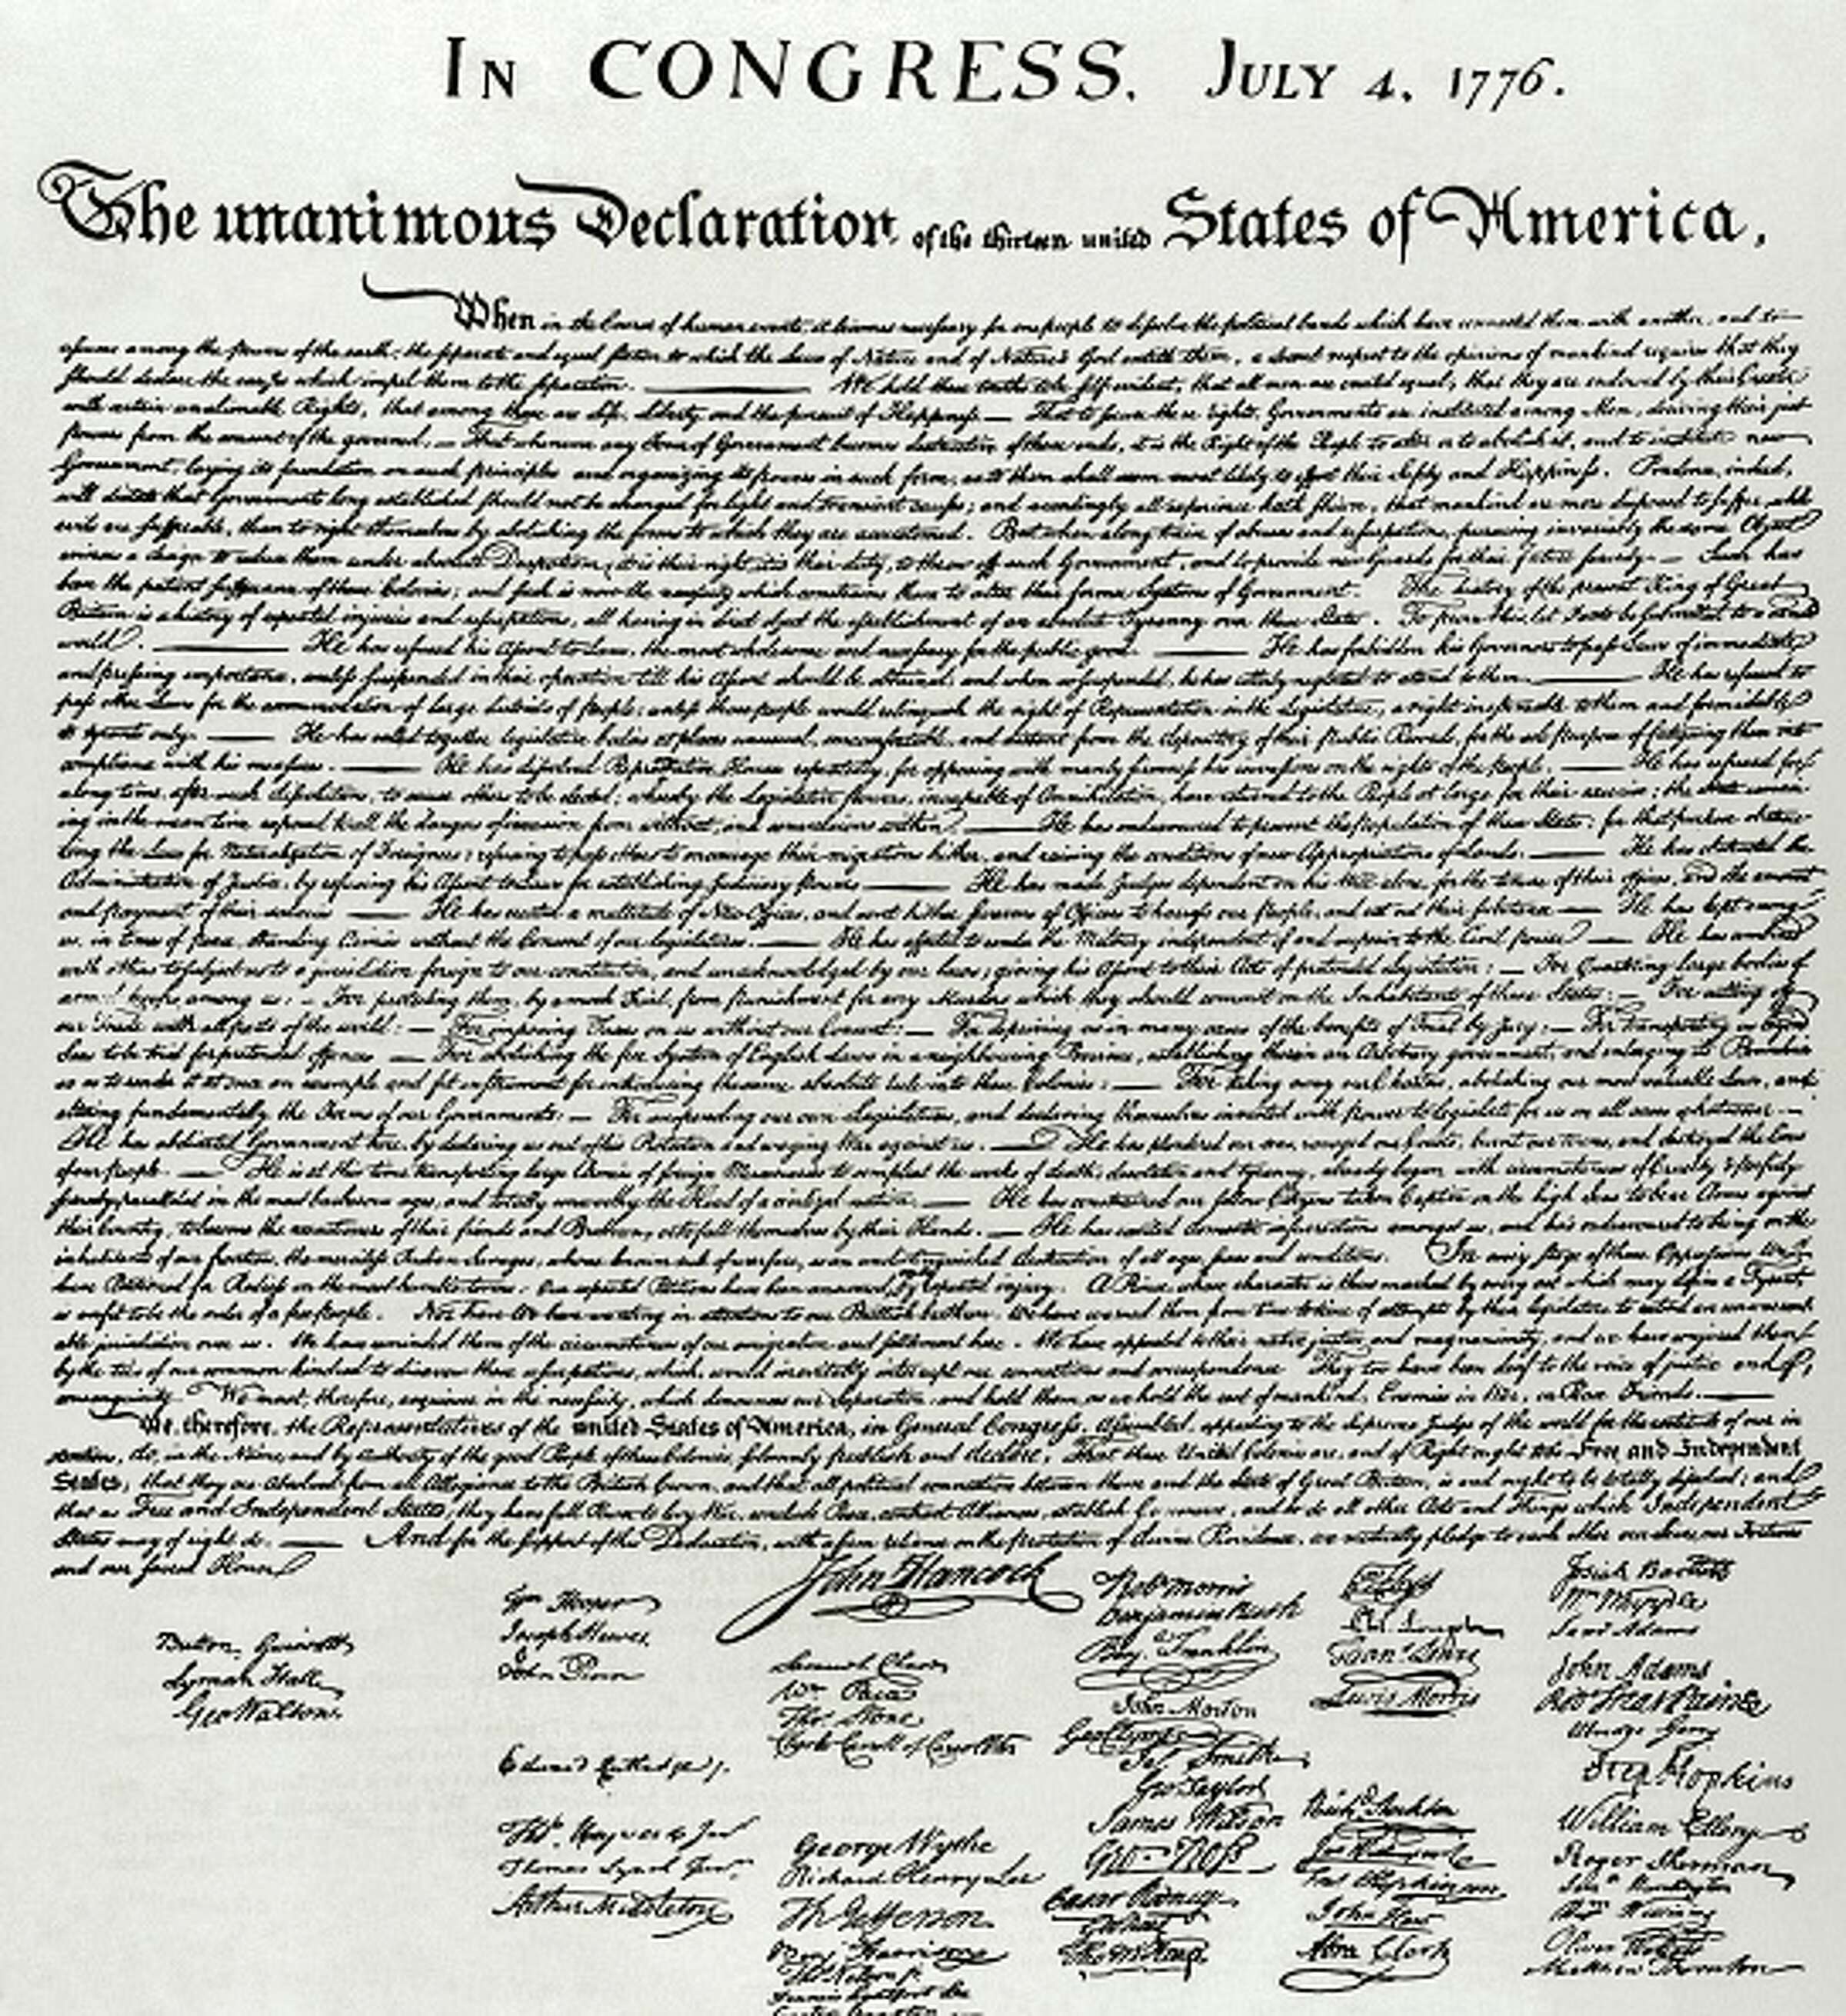 IN CONGRESS, JULY 4, 1776.
The unanimous Declaration of the thirteen united States of America,
When in the Course of human events, it becomes necessary for one people to dissolve the political bands which have connected them with another, and to
assume among the powers of the earth, the separate and equal station to which the Laws of Nature and of Nature's God entitle them, a decent respect to the opinions of mankind requires that they
should declare the causes which impel them to the separation. — We hold these truths to be self-evident, that all men are created equal, that they are endowed by their Creator
with certain unalienable Rights, that among these are Life, Liberty and the pursuit of Happiness — That to secure these rights, Governments are instituted among Men, deriving their just
powers from the consent of the governed, — That whenever any Form of Government becomes destructive of these ends, it is the Right of the People to alter or to abolish it, and to institute new
Government, laying its foundation on such principles and organizing its powers in such form, as to them shall seem most likely to effect their Safety and Happiness. Prudence, indeed,
will dictate that Governments long established should not be changed for light and transient causes; and accordingly all experience hath shewn, that mankind are more disposed to suffer, while
evils are sufferable, than to right themselves by abolishing the forms to which they are accustomed. But when a long train of abuses and usurpations, pursuing invariably the same Object
evinces a design to reduce them under absolute Despotism, it is their right, it is their duty, to throw off such Government, and to provide new Guards for their future security. — Such has
been the patient sufferance of these Colonies; and such is now the necessity which constrains them to alter their former Systems of Government. The history of the present King of Great
Britain is a history of repeated injuries and usurpations, all having in direct object the establishment of an absolute Tyranny over these States. To prove this, let Facts be submitted to a candid
world. — He has refused his Assent to Laws, the most wholesome and necessary for the public good. — He has forbidden his Governors to pass Laws of immediate
and pressing importance, unless suspended in their operation till his Assent should be obtained; and when so suspended, he has utterly neglected to attend to them. — He has refused to
pass other Laws for the accommodation of large districts of people, unless those people would relinquish the right of Representation in the Legislature, a right inestimable to them and formidable
to tyrants only. — He has called together legislative bodies at places unusual, uncomfortable, and distant from the depository of their Public Records, for the sole purpose of fatiguing them into
compliance with his measures. — He has dissolved Representative Houses repeatedly, for opposing with manly firmness his invasions on the rights of the people. — He has refused for
a long time, after such dissolutions, to cause others to be elected; whereby the Legislative powers, incapable of Annihilation, have returned to the People at large for their exercise; the State remain-
ing in the mean time exposed to all the dangers of invasion from without, and convulsions within. — He has endeavoured to prevent the population of these States; for that purpose obstruc-
ting the Laws for Naturalization of Foreigners; refusing to pass others to encourage their migrations hither, and raising the conditions of new Appropriations of Lands. — He has obstructed the
Administration of Justice, by refusing his Assent to Laws for establishing Judiciary powers. — He has made Judges dependent on his Will alone, for the tenure of their offices, and the amount
and payment of their salaries. — He has erected a multitude of New Offices, and sent hither swarms of Officers to harrass our people, and eat out their substance. — He has kept among
us, in times of peace, Standing Armies without the Consent of our legislatures. — He has affected to render the Military independent of and superior to the Civil power. — He has combined
with others to subject us to a jurisdiction foreign to our constitution, and unacknowledged by our laws; giving his Assent to their Acts of pretended Legislation: — For Quartering large bodies of
armed troops among us: — For protecting them, by a mock Trial, from punishment for any Murders which they should commit on the Inhabitants of these States: — For cutting off
our Trade with all parts of the world: — For imposing Taxes on us without our Consent: — For depriving us in many cases, of the benefits of Trial by Jury: — For transporting us beyond
Seas to be tried for pretended offences — For abolishing the free System of English Laws in a neighbouring Province, establishing therein an Arbitrary government, and enlarging its Boundaries
so as to render it at once an example and fit instrument for introducing the same absolute rule into these Colonies: — For taking away our Charters, abolishing our most valuable Laws, and
altering fundamentally the Forms of our Governments: — For suspending our own Legislatures, and declaring themselves invested with power to legislate for us in all cases whatsoever. —
He has abdicated Government here, by declaring us out of his Protection and waging War against us. — He has plundered our seas, ravaged our Coasts, burnt our towns, and destroyed the lives
of our people. — He is at this time transporting large Armies of foreign Mercenaries to compleat the works of death, desolation and tyranny, already begun with circumstances of Cruelty & perfidy
scarcely paralleled in the most barbarous ages, and totally unworthy the Head of a civilized nation. — He has constrained our fellow Citizens taken Captive on the high Seas to bear Arms against
their Country, to become the executioners of their friends and Brethren, or to fall themselves by their Hands. — He has excited domestic insurrections amongst us, and has endeavoured to bring on the
inhabitants of our frontiers, the merciless Indian Savages, whose known rule of warfare, is an undistinguished destruction of all ages, sexes and conditions. In every stage of these Oppressions We
have Petitioned for Redress in the most humble terms: Our repeated Petitions have been answered by repeated injury. A Prince, whose character is thus marked by every act which may define a Tyrant,
is unfit to be the ruler of a free people. Nor have We been wanting in attentions to our Brittish brethren. We have warned them from time to time of attempts by their legislature to extend an unwarrant-
able jurisdiction over us. We have reminded them of the circumstances of our emigration and settlement here. We have appealed to their native justice and magnanimity, and we have conjured them
by the ties of our common kindred to disavow these usurpations, which, would inevitably interrupt our connections and correspondence They too have been deaf to the voice of justice and of
consanguinity. We must, therefore, acquiesce in the necessity, which denounces our Separation, and hold them, as we hold the rest of mankind, Enemies in War, in Peace Friends. —
We, therefore, the Representatives of the united States of America, in General Congress, Assembled, appealing to the Supreme Judge of the world for the rectitude of our in
tentions, do, in the Name, and by authority of the good People of these Colonies, solemnly publish and declare, That these United Colonies are, and of Right ought to be Free and Independent
States; that they are Absolved from all Allegiance to the British Crown, and that all political connection between them and the State of Great Britain, is and ought to be totally dissolved; and
that as Free and Independent States, they have full Power to levy War, conclude Peace, contract Alliances, establish Commerce, and to do all other Acts and Things which Independent
States may of right do. — And for the support of this Declaration, with a firm reliance on the protection of divine Providence, we mutually pledge to each other our Lives, our Fortunes
and our sacred Honor
Button Gwinnett
Lyman Hall
Geo Walton
Wm Hooper
Joseph Hewes
John Penn
Edward Rutledge
Thos Heyward Junr
Thomas Lynch Junr
Arthur Middleton
John Hancock
Samuel Chase
Wm Paca
Thos Stone
Charles Carroll of Carrollton
George Wythe
Richard Henry Lee
Th Jefferson
Benj Harrison
Thos Nelson jr
Francis Lightfoot Lee
Robt Morris
Benjamin Rush
Benj Franklin
John Morton
Geo Clymer
Jas Smith
Geo Taylor
James Wilson
Geo Ross
Caesar Rodney
Geo Read
Tho M:Kean
Phil. Livingston
Frans Lewis
Lewis Morris
Richd Stockton
Jno Witherspoon
Fras Hopkinson
John Hart
Abra Clark
Josiah Bartlett
Wm Whipple
Saml Adams
John Adams
Robt Treat Paine
Elbridge Gerry
Step Hopkins
William Ellery
Roger Sherman
Saml Huntington
Wm Williams
Oliver Wolcott
Matthew Thornton